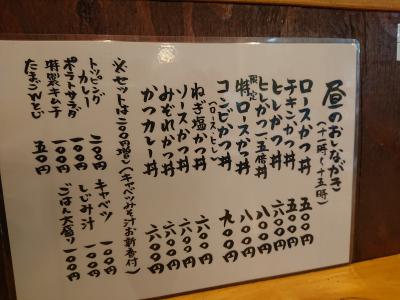 昼のおしながき
(十一時〜十五時)
ロースかつ丼 五〇〇円
チキンかつ丼 五五〇円
ヒレかつ丼 六〇〇円
ヒレかつ一・五倍丼 八〇〇円
限定 特ロースかつ丼 八〇〇円
コンビかつ丼 九〇〇円
(ロース・ヒレ)
ねぎ塩かつ丼 六〇〇円
ソースかつ丼 六〇〇円
みぞれかつ丼 六〇〇円
かつカレー丼 六〇〇円
※セットは二〇〇円増し(キャベツ、みそ汁、お新香付)
トッピング
カレー 二〇〇円
ポテトサラダ 一〇〇円
特製キムチ 一〇〇円
たまごとじ 五〇円
キャベツ 一〇〇円
しじみ汁 一〇〇円
ごはん大盛り 一〇〇円